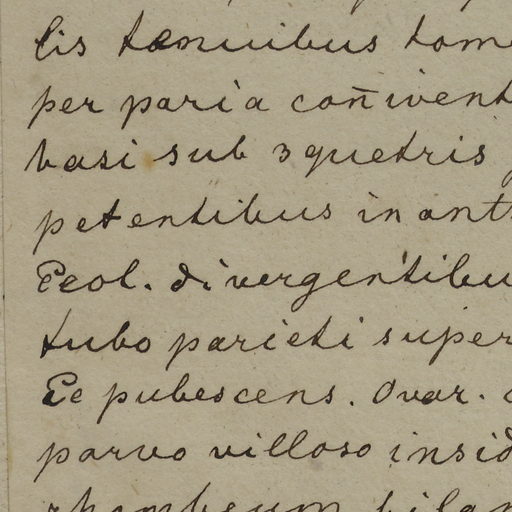 lis tenuibus tome
per paria coñivent
basi sub 3quetris
petentibus in ant
Peol. divergentibu
tubo parieti super
Pe pubescens. Ovar.
parvo villoso insid
rhombeum bilam